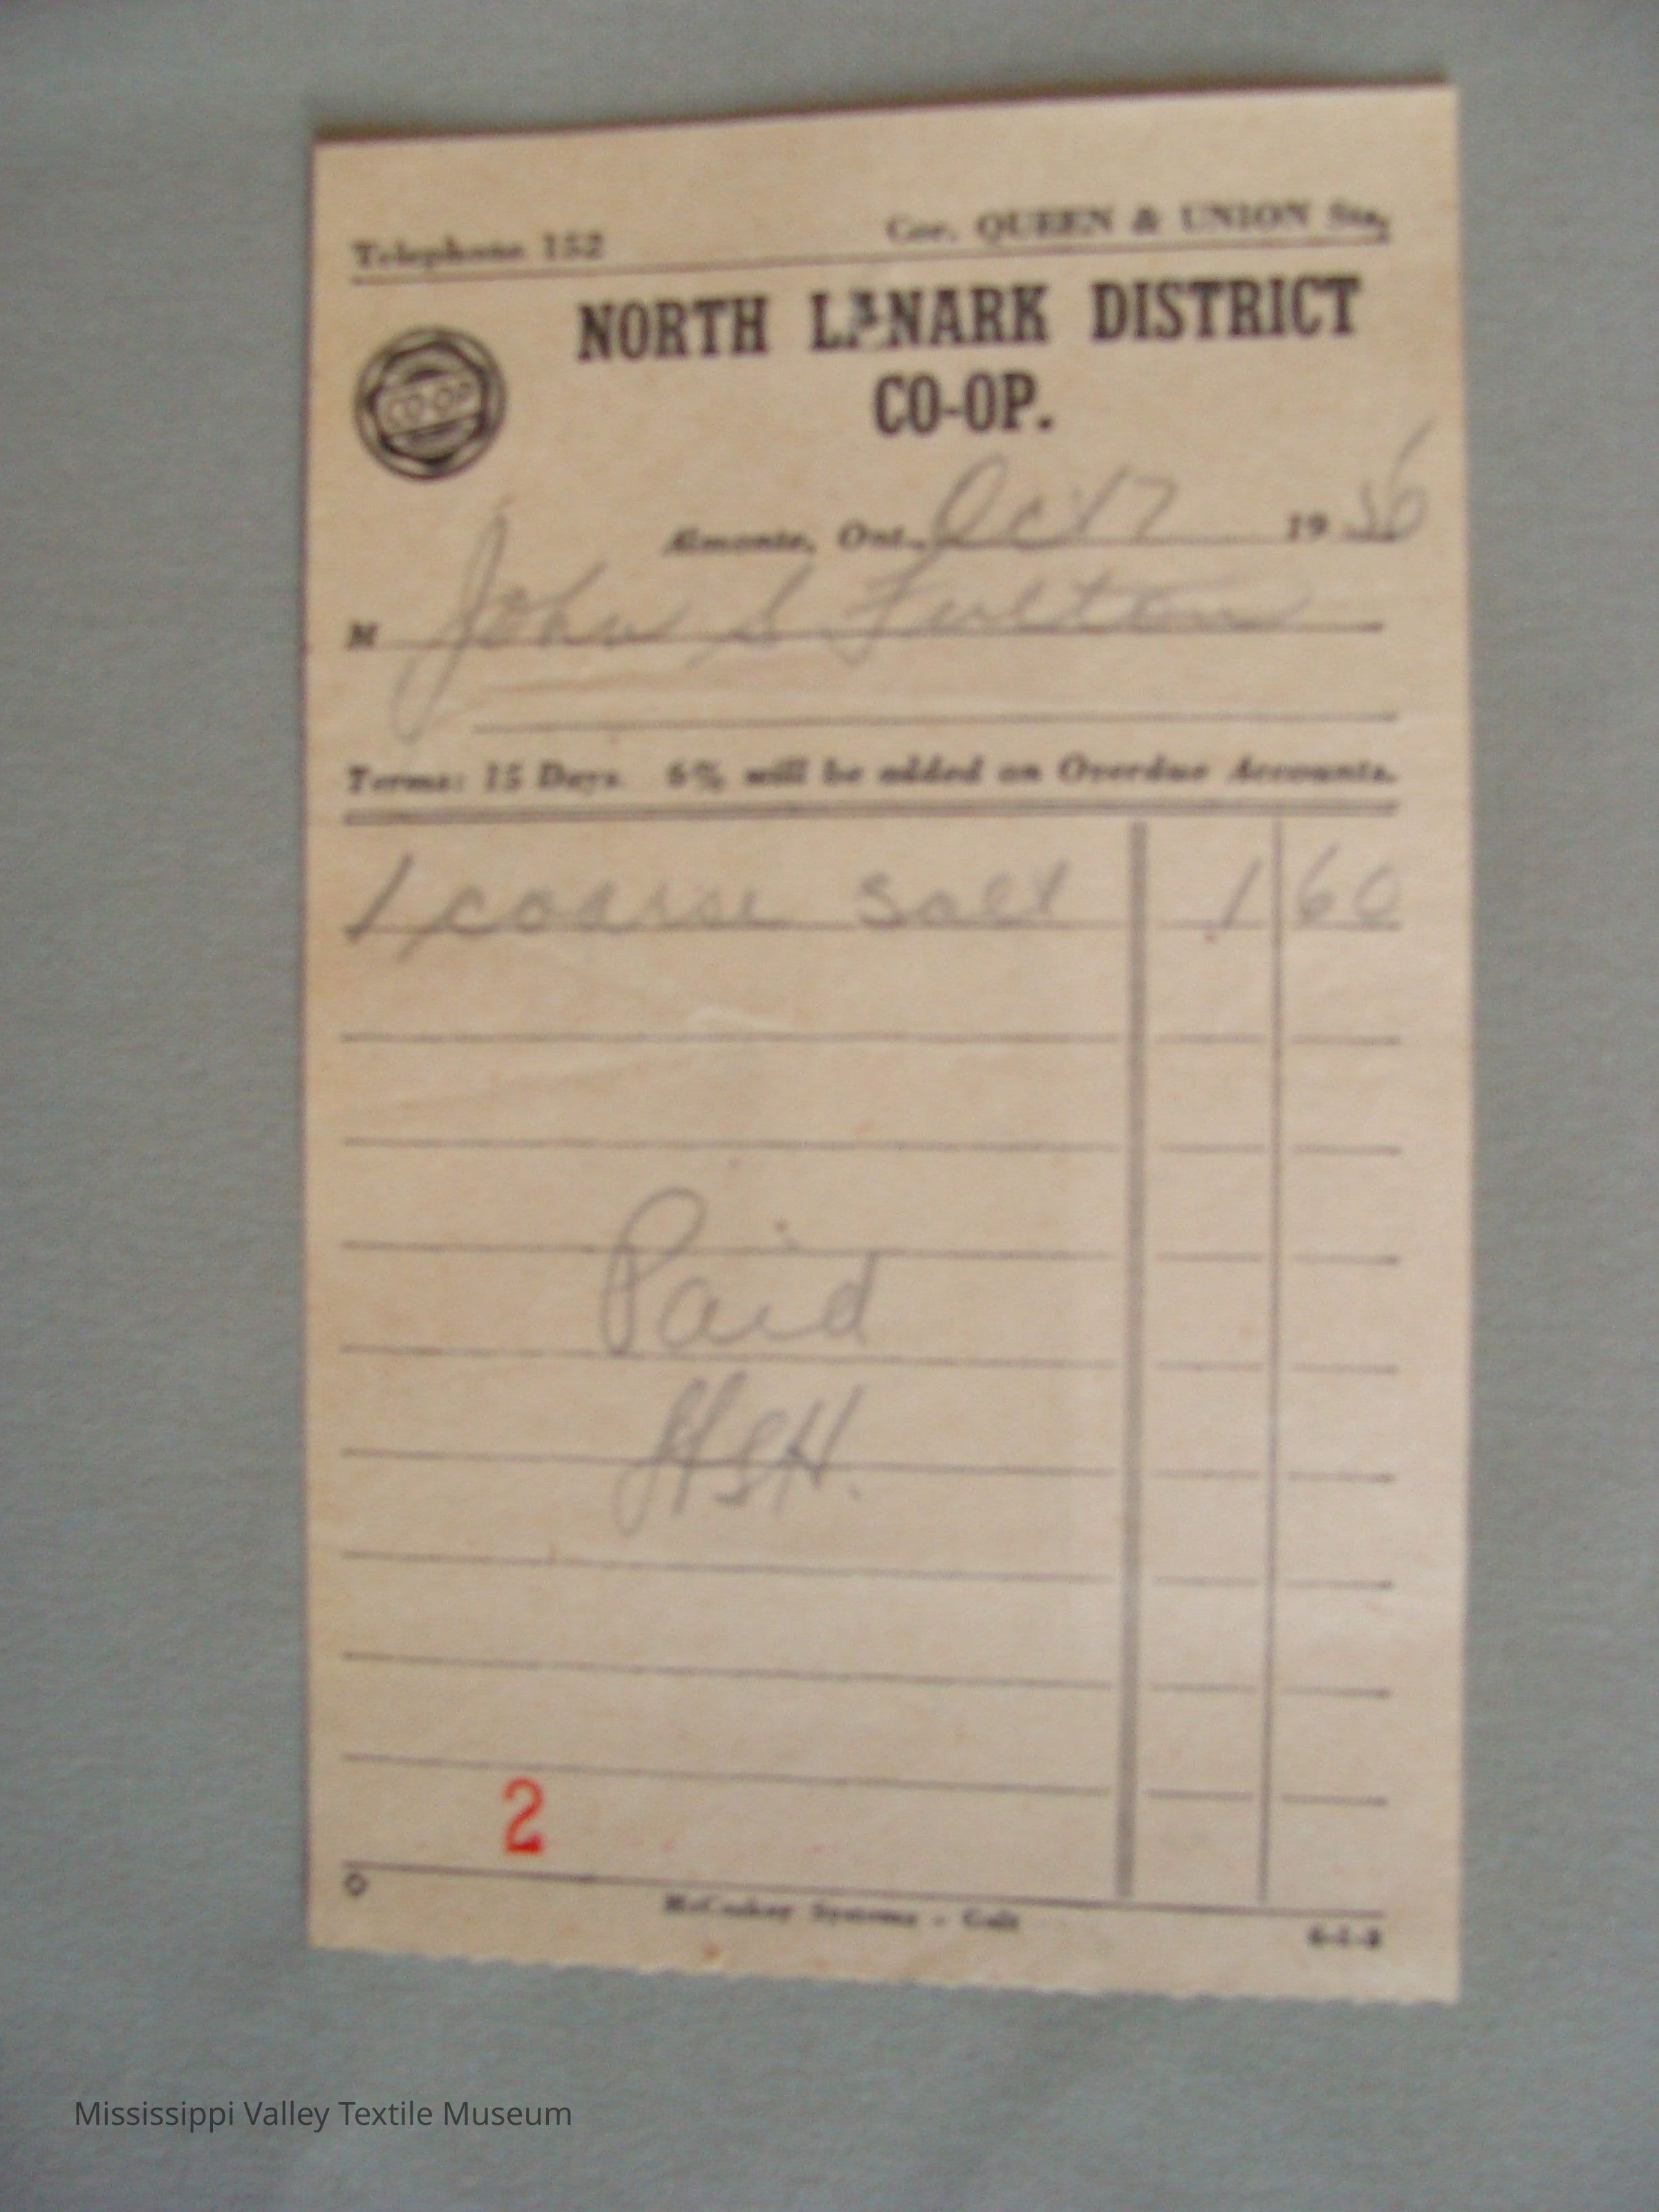 Telephone 152 Cor. QUEEN & UNION Sts.
NORTH LANARK DISTRICT
CO-OP.
CO-OP
Almonte, Ont. Oct 7 1956
M John S Fulton
Terms: 15 Days. 6% will be added on Overdue Accounts.
1 coarse salt 1 60
Paid
HSH.
2
McCaskey Systems - Galt
Mississippi Valley Textile Museum